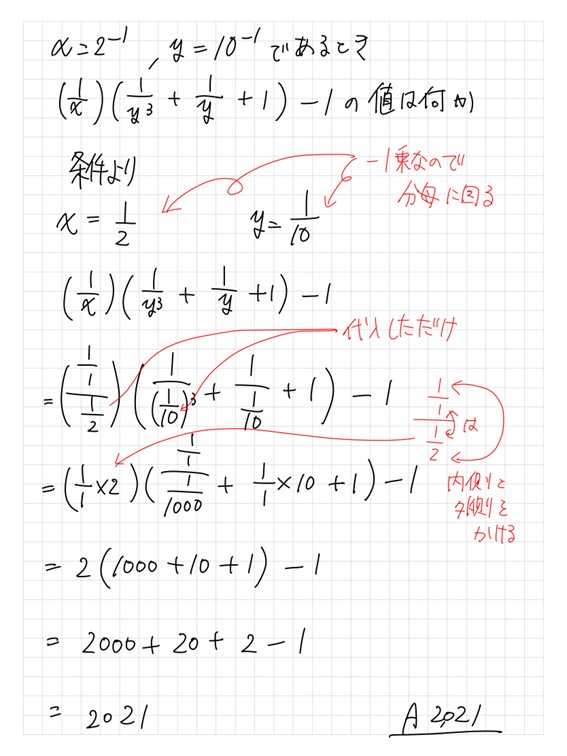 x=2⁻¹ , y=10⁻¹ であるとき
(1/x)(1/y³ + 1/y + 1) - 1 の値は何か
条件より
-1乗なので
分母に回る
x = 1/2 y = 1/10
(1/x)(1/y³ + 1/y + 1) - 1
代入しただけ
= ((1/1)/(1/2))(1/(1/10)³ + 1/(1/10) + 1) - 1
(1/1)/(1/2) は
内側と
外側を
かける
= (1/1 × 2)((1/1)/(1/1000) + 1/1 × 10 + 1) - 1
= 2(1000 + 10 + 1) - 1
= 2000 + 20 + 2 - 1
= 2021
A 2021